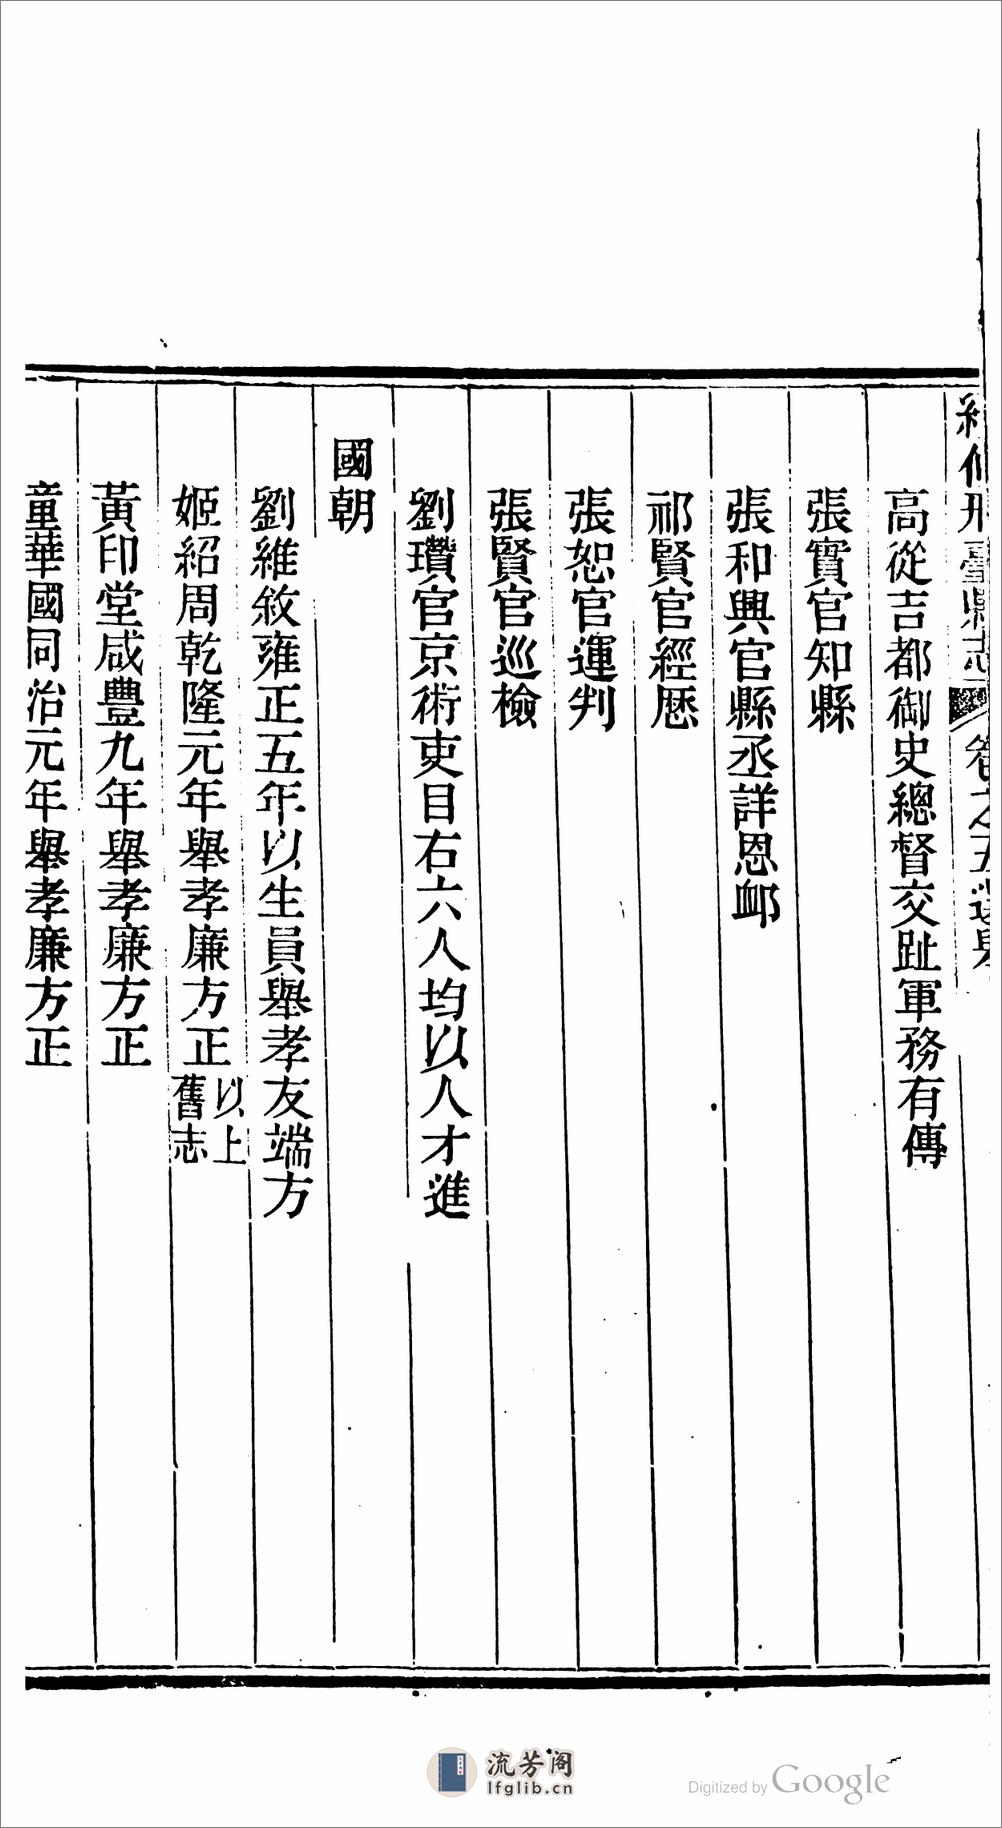 邢臺縣志 卷之五
高從吉都御史總督交趾軍務有傳
張實官知縣
張和興官縣丞詳恩卹
祁賢官經歷
張恕官運判
張賢官巡檢
劉瓚官京衛吏目右六人均以人才進
國朝
劉維敘雍正五年以生員舉孝友端方
姬紹周乾隆元年舉孝廉方正以上舊志
黃印堂咸豐九年舉孝廉方正
童華國同治元年舉孝廉方正
流芳阁
lfglib.cn
Digitized by Google